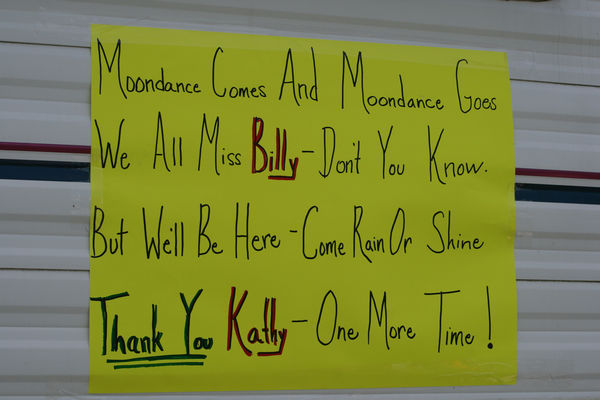 Moondance Comes And Moondance Goes
We All Miss Billy - Don't You Know.
But We'll Be Here - Come Rain Or Shine
Thank You Kathy - One More Time!